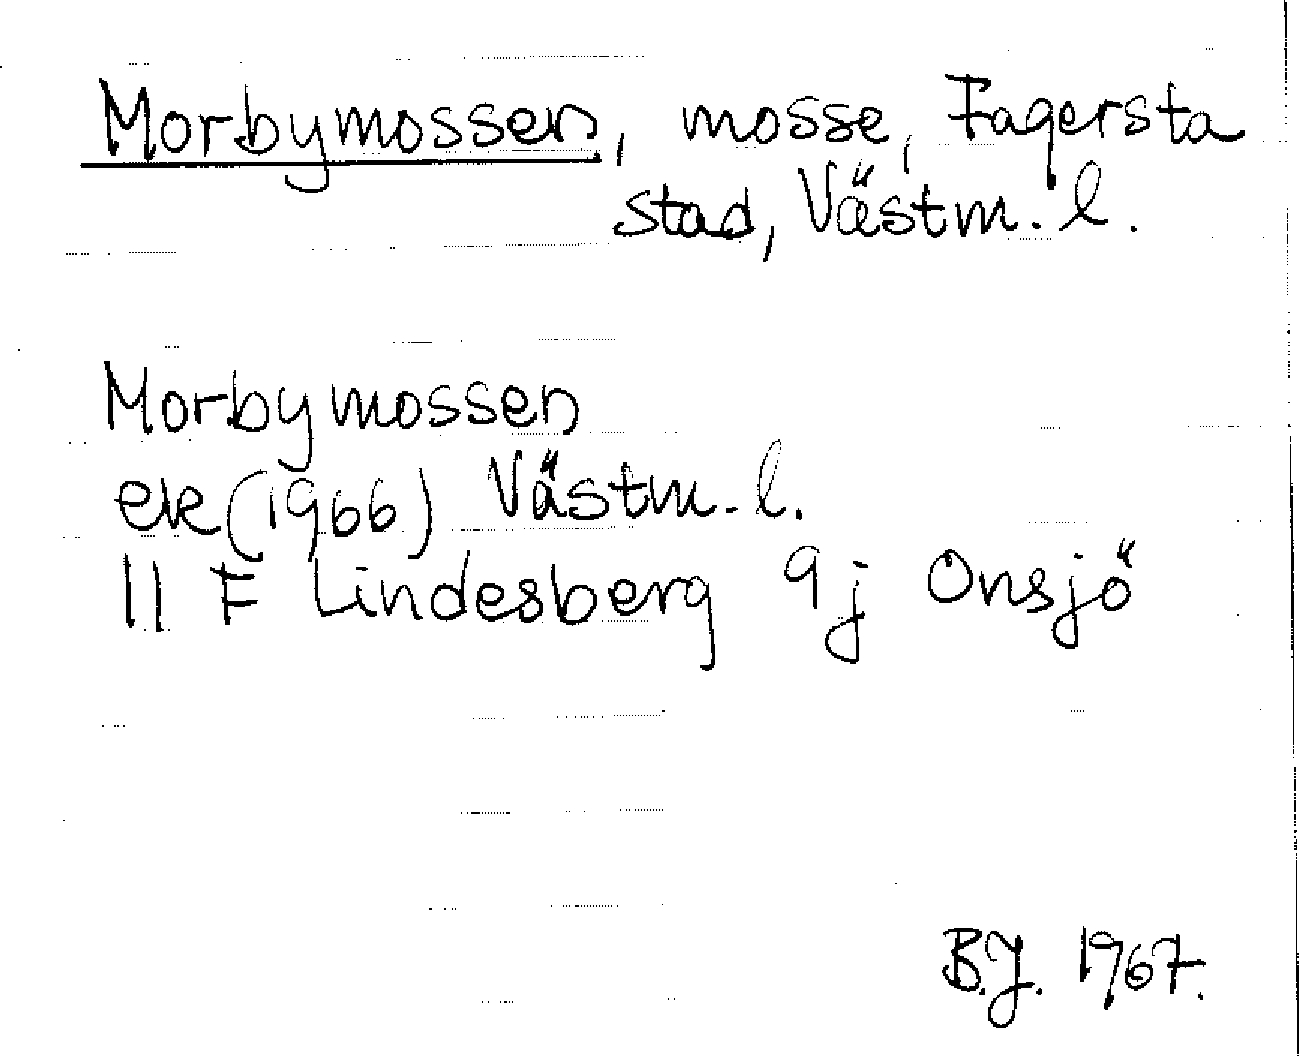 Morbymossen, mosse, Fagersta
stad, Västm. l.
Morbymossen
ek (1966) Västm. l.
11 F Lindesberg 9j Onsjö
B.J. 1967.